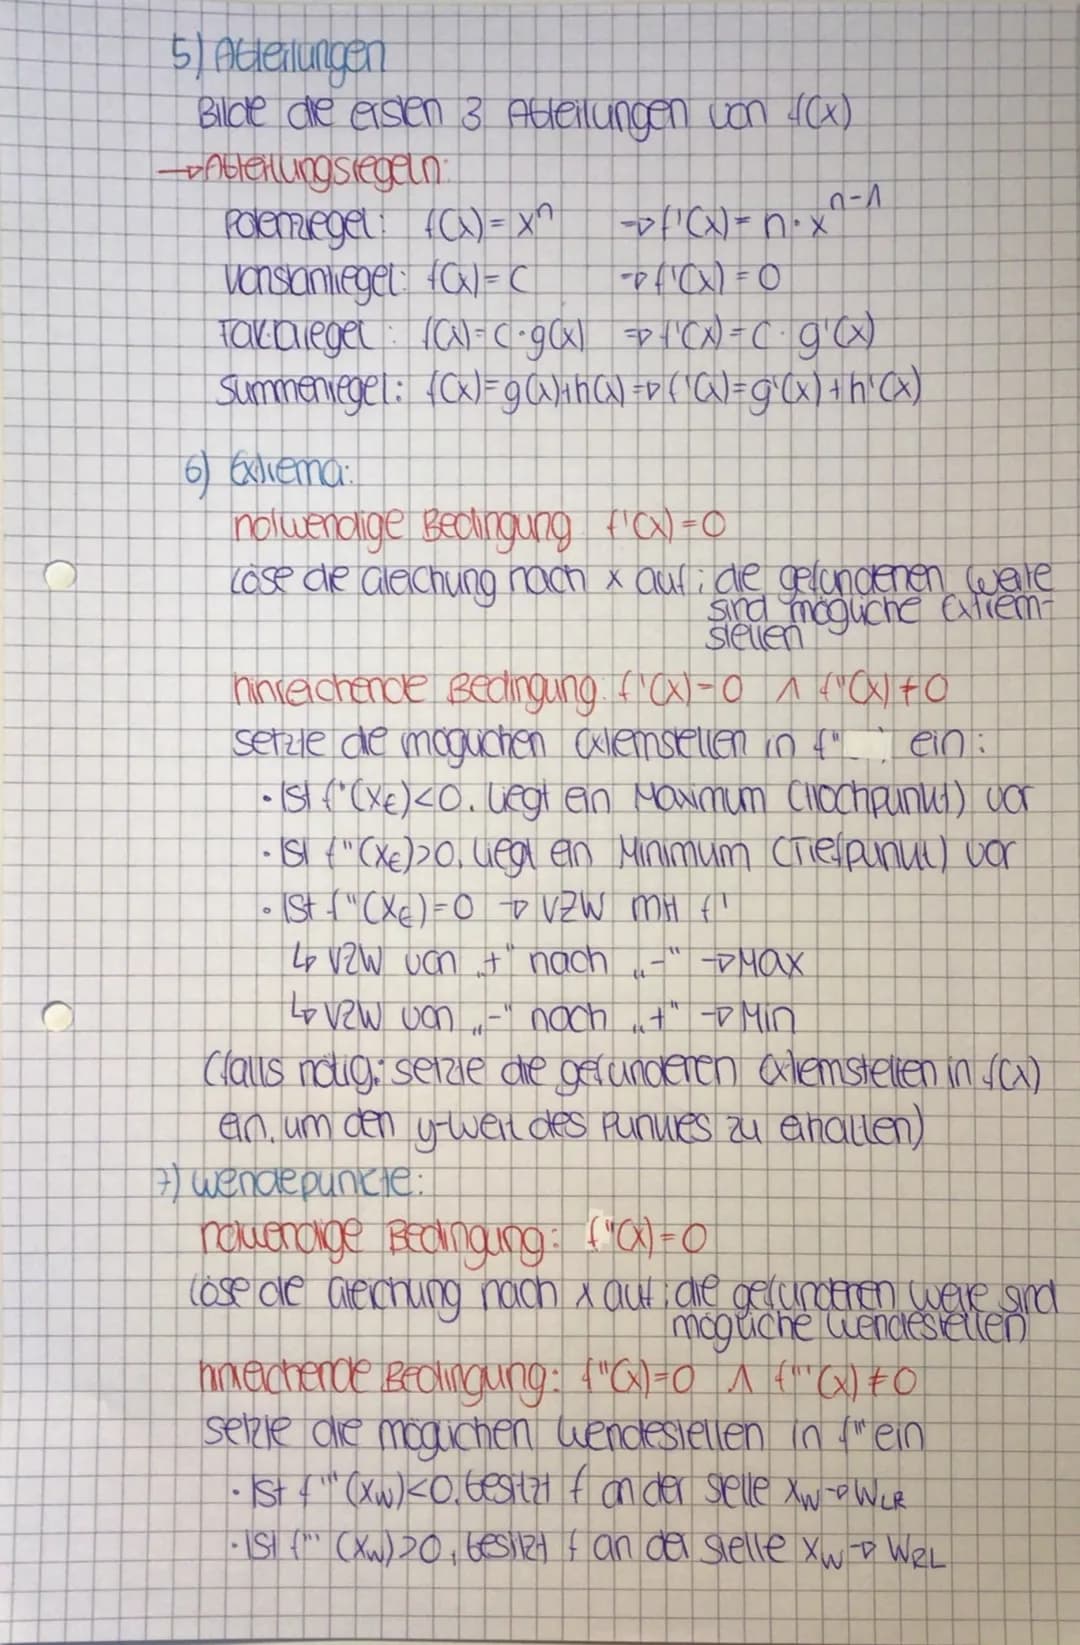 5) Ableitungen
Bilde die ersten 3 Ableitungen von f(x)
→ Ableitungsregeln:
Potenzregel: f(x)=xⁿ → f'(x)= n·xⁿ⁻¹
Konstantregel: f(x)=C → f'(x)=0
Faktorregel: f(x)=C·g(x) → f'(x)=C·g'(x)
Summenregel: f(x)=g(x)+h(x) → f'(x)=g'(x)+h'(x)
6) Extrema:
notwendige Bedingung f'(x)=0
Löse die Gleichung nach x auf; die gefundenen Werte
sind mögliche Extrem-
stellen
hinreichende Bedingung: f'(x)=0 ∧ f''(x)≠0
setzte die möglichen Extremstellen in f'' ein:
• Ist f''(xE)<0, liegt ein Maximum (Hochpunkt) vor
• Ist f''(xE)>0, liegt ein Minimum (Tiefpunkt) vor
• Ist f''(xE)=0 → VZW mit f'
↳ VZW von „+" nach „-" → Max
↳ VZW von „-" nach „+" → Min
(falls nötig: setzte die gefunderen Extremstellen in f(x)
ein, um den y-Wert des Punktes zu erhalten)
7) Wendepunkte:
notwendige Bedingung: f''(x)=0
Löse die Gleichung nach x auf; die gefundenen Werte sind
mögliche Wendestellen
hinreichende Bedingung: f''(x)=0 ∧ f'''(x)≠0
setzte die möglichen Wendestellen in f''' ein
• Ist f'''(xW)<0, besitzt f an der Stelle xW → WLR
• Ist f'''(xW)>0, besitzt f an der Stelle xW → WRL